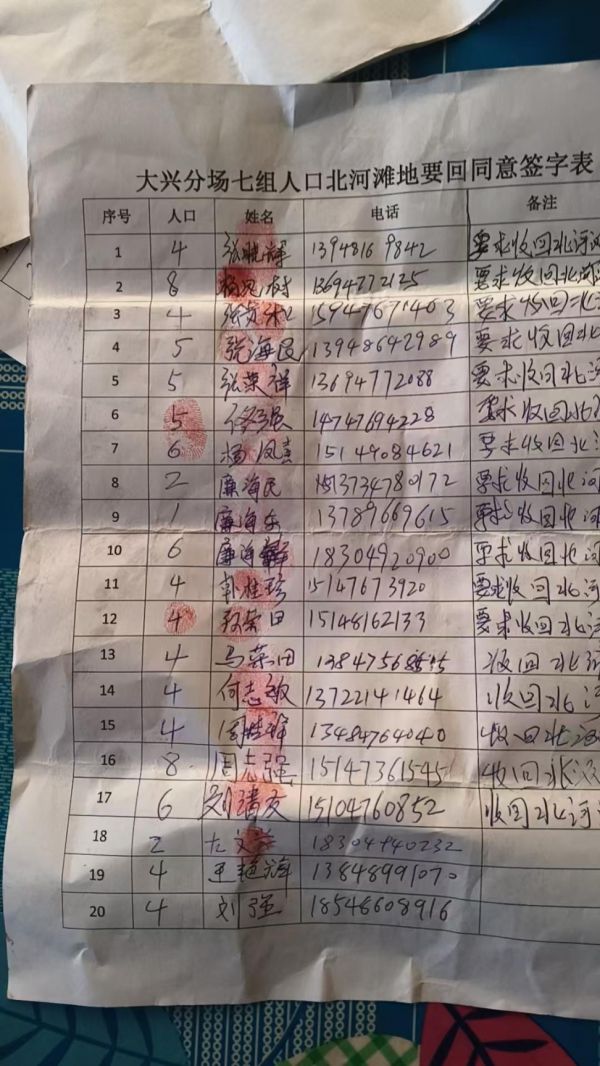 大兴分场七组人口北河滩地要回同意签字表
序号 人口 姓名 电话 备注
1 4 张晓辉 1394816 9842 要求收回北河
2 8 树 13694772125 要求收回北
3 4 张 15947671403 要求收回北
4 5 张海民 13948642989 要求收回北
5 5 张荣祥 13694772088 要求收回北河
6 5 强 14747694228 要求收回北
7 6 杨凤喜 15149084621 要求收回北
8 2 廉海民 要求收回北河
9 1 廉海东 13789669615 要求收回北河
10 6 廉海 18304920900 要求收回北河
11 4 郭桂珍 15147673920 要求收回北河
12 4 荣田 15148162133 要求收回北河
13 4 马荣田 收回北
14 4 何志敏 13722141464 收回北
15 4 周 13484764040 收回北河
16 8 周志强 15147361545 收回北河
17 6 刘清友 15104760852 收回北河
18 2 18304940232
19 4 王艳辉 13848991070
20 4 刘强 18548608916